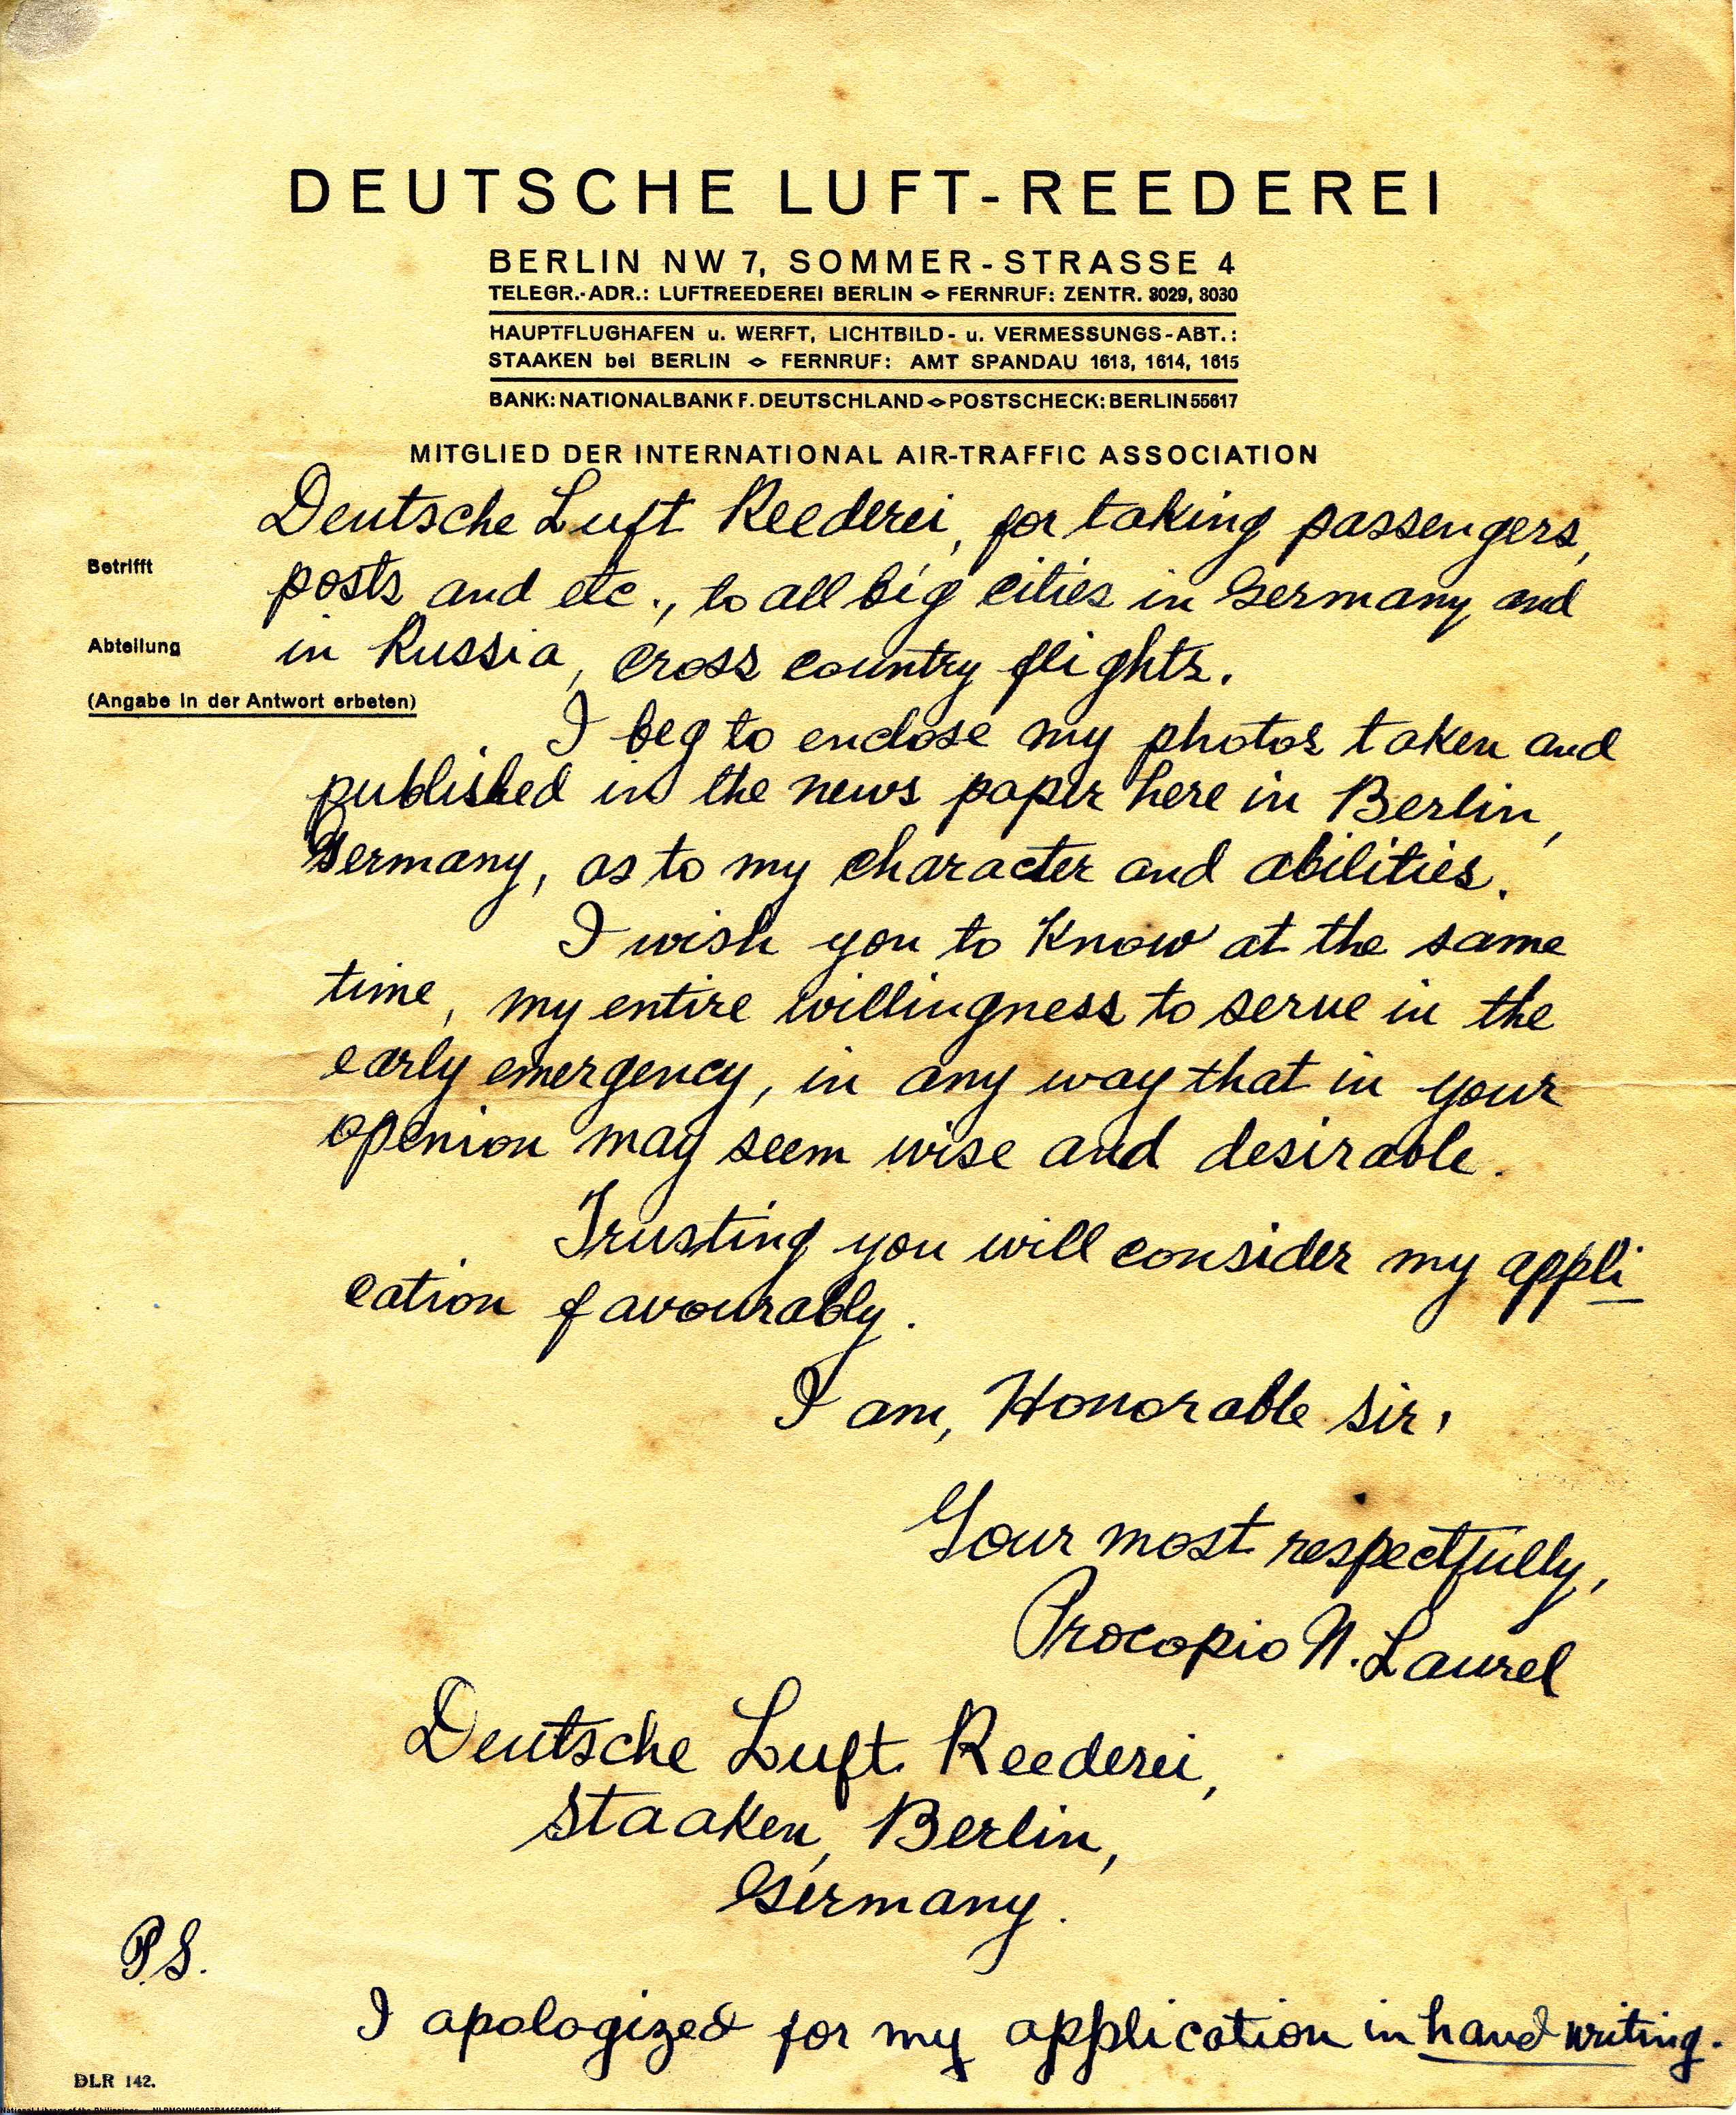 DEUTSCHE LUFT-REEDEREI
BERLIN NW 7, SOMMER-STRASSE 4
TELEGR.-ADR.: LUFTREEDEREI BERLIN ⋄ FERNRUF: ZENTR. 3029, 3030
HAUPTFLUGHAFEN u. WERFT, LICHTBILD- u. VERMESSUNGS-ABT.:
STAAKEN bei BERLIN ⋄ FERNRUF: AMT SPANDAU 1613, 1614, 1615
BANK: NATIONALBANK F. DEUTSCHLAND ⋄ POSTSCHECK: BERLIN 55617
MITGLIED DER INTERNATIONAL AIR-TRAFFIC ASSOCIATION
Deutsche Luft Reederei, for taking passengers,
Betrifft
posts and etc., to all big cities in Germany and
Abteilung
in Russia, cross country flights.
(Angabe in der Antwort erbeten)
I beg to enclose my photos taken and
published in the news paper here in Berlin,
Germany, as to my character and abilities.
I wish you to know at the same
time, my entire willingness to serve in the
early emergency, in any way that in your
openion may seem wise and desirable.
Trusting you will consider my appli
cation favourably.
I am, Honorable sir,
Your most respectfully,
Procopio N. Laurel
Deutsche Luft Reederei,
Staaken, Berlin,
Germany.
P.S.
I apologized for my application in hand writing.
DLR 142.
National Library of the Philippines